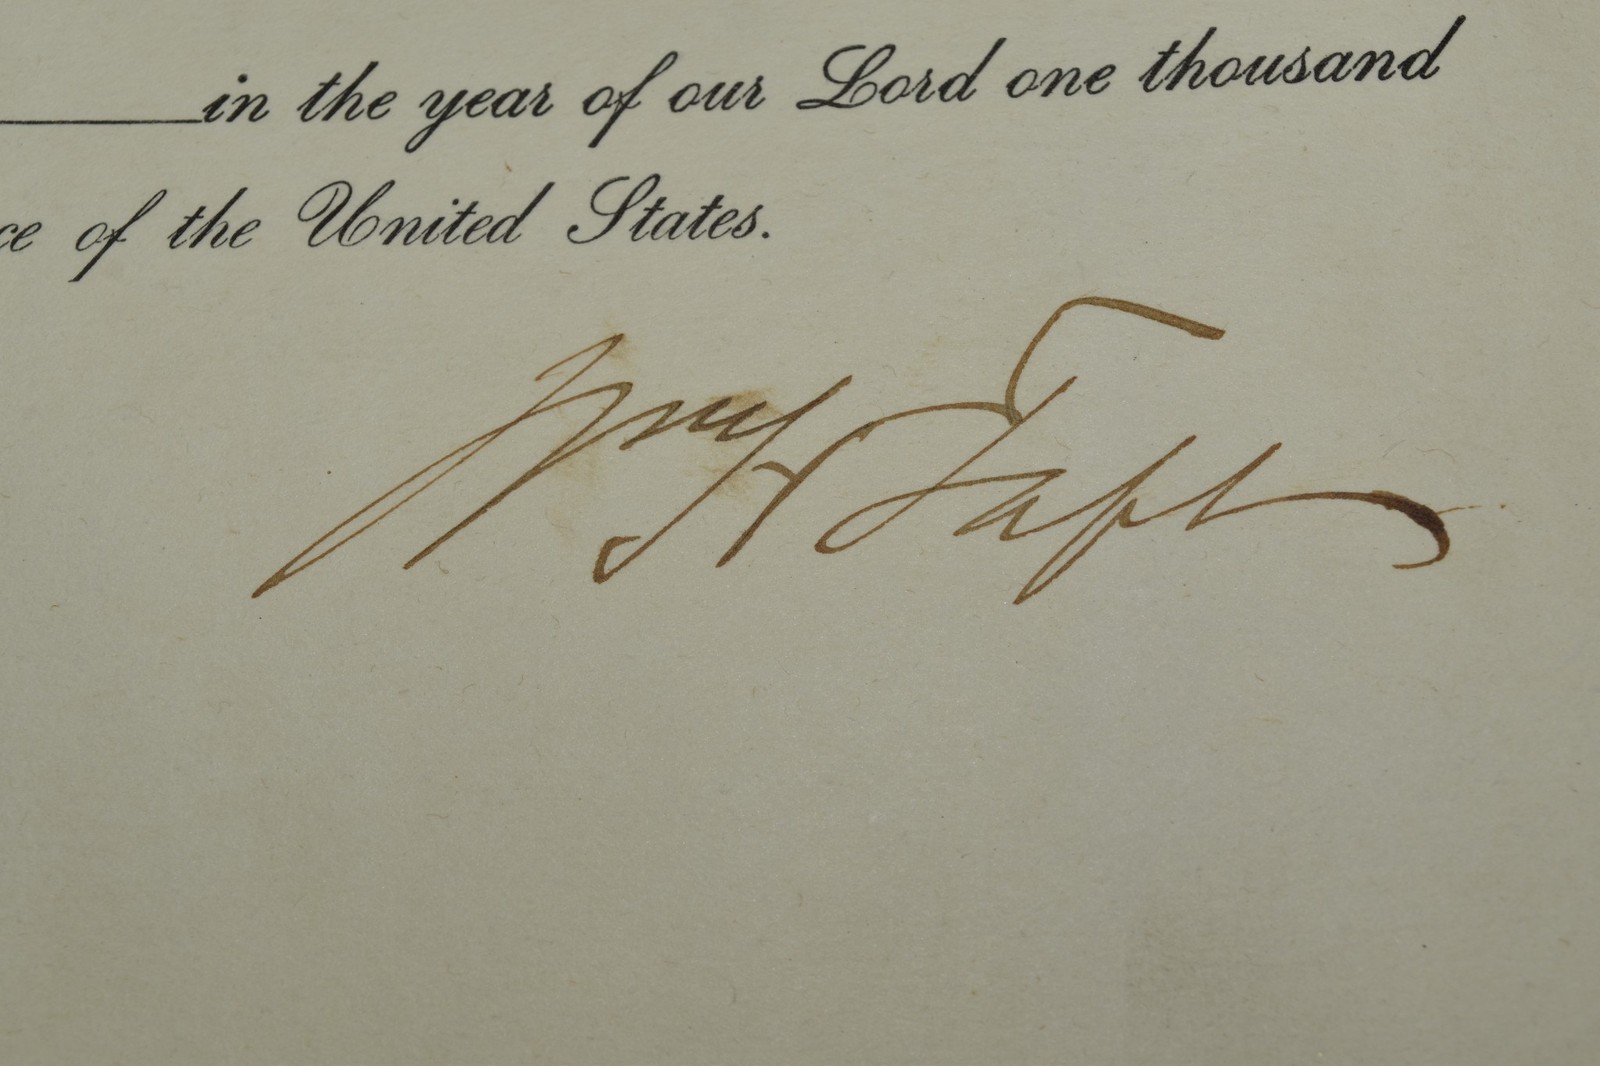 in the year of our Lord one thousand
ce of the United States.
Wm H Taft